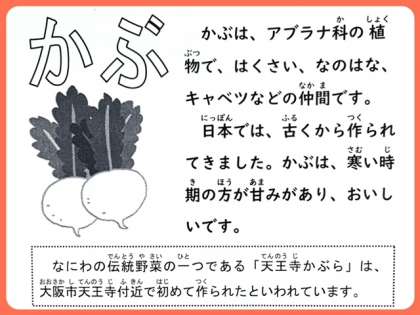 かぶ
かぶは、アブラナ科の植
物で、はくさい、なのはな、
キャベツなどの仲間です。
日本では、古くから作られ
てきました。かぶは、寒い時
期の方が甘みがあり、おいし
いです。
なにわの伝統野菜の一つである「天王寺かぶら」は、
大阪市天王寺付近で初めて作られたといわれています。